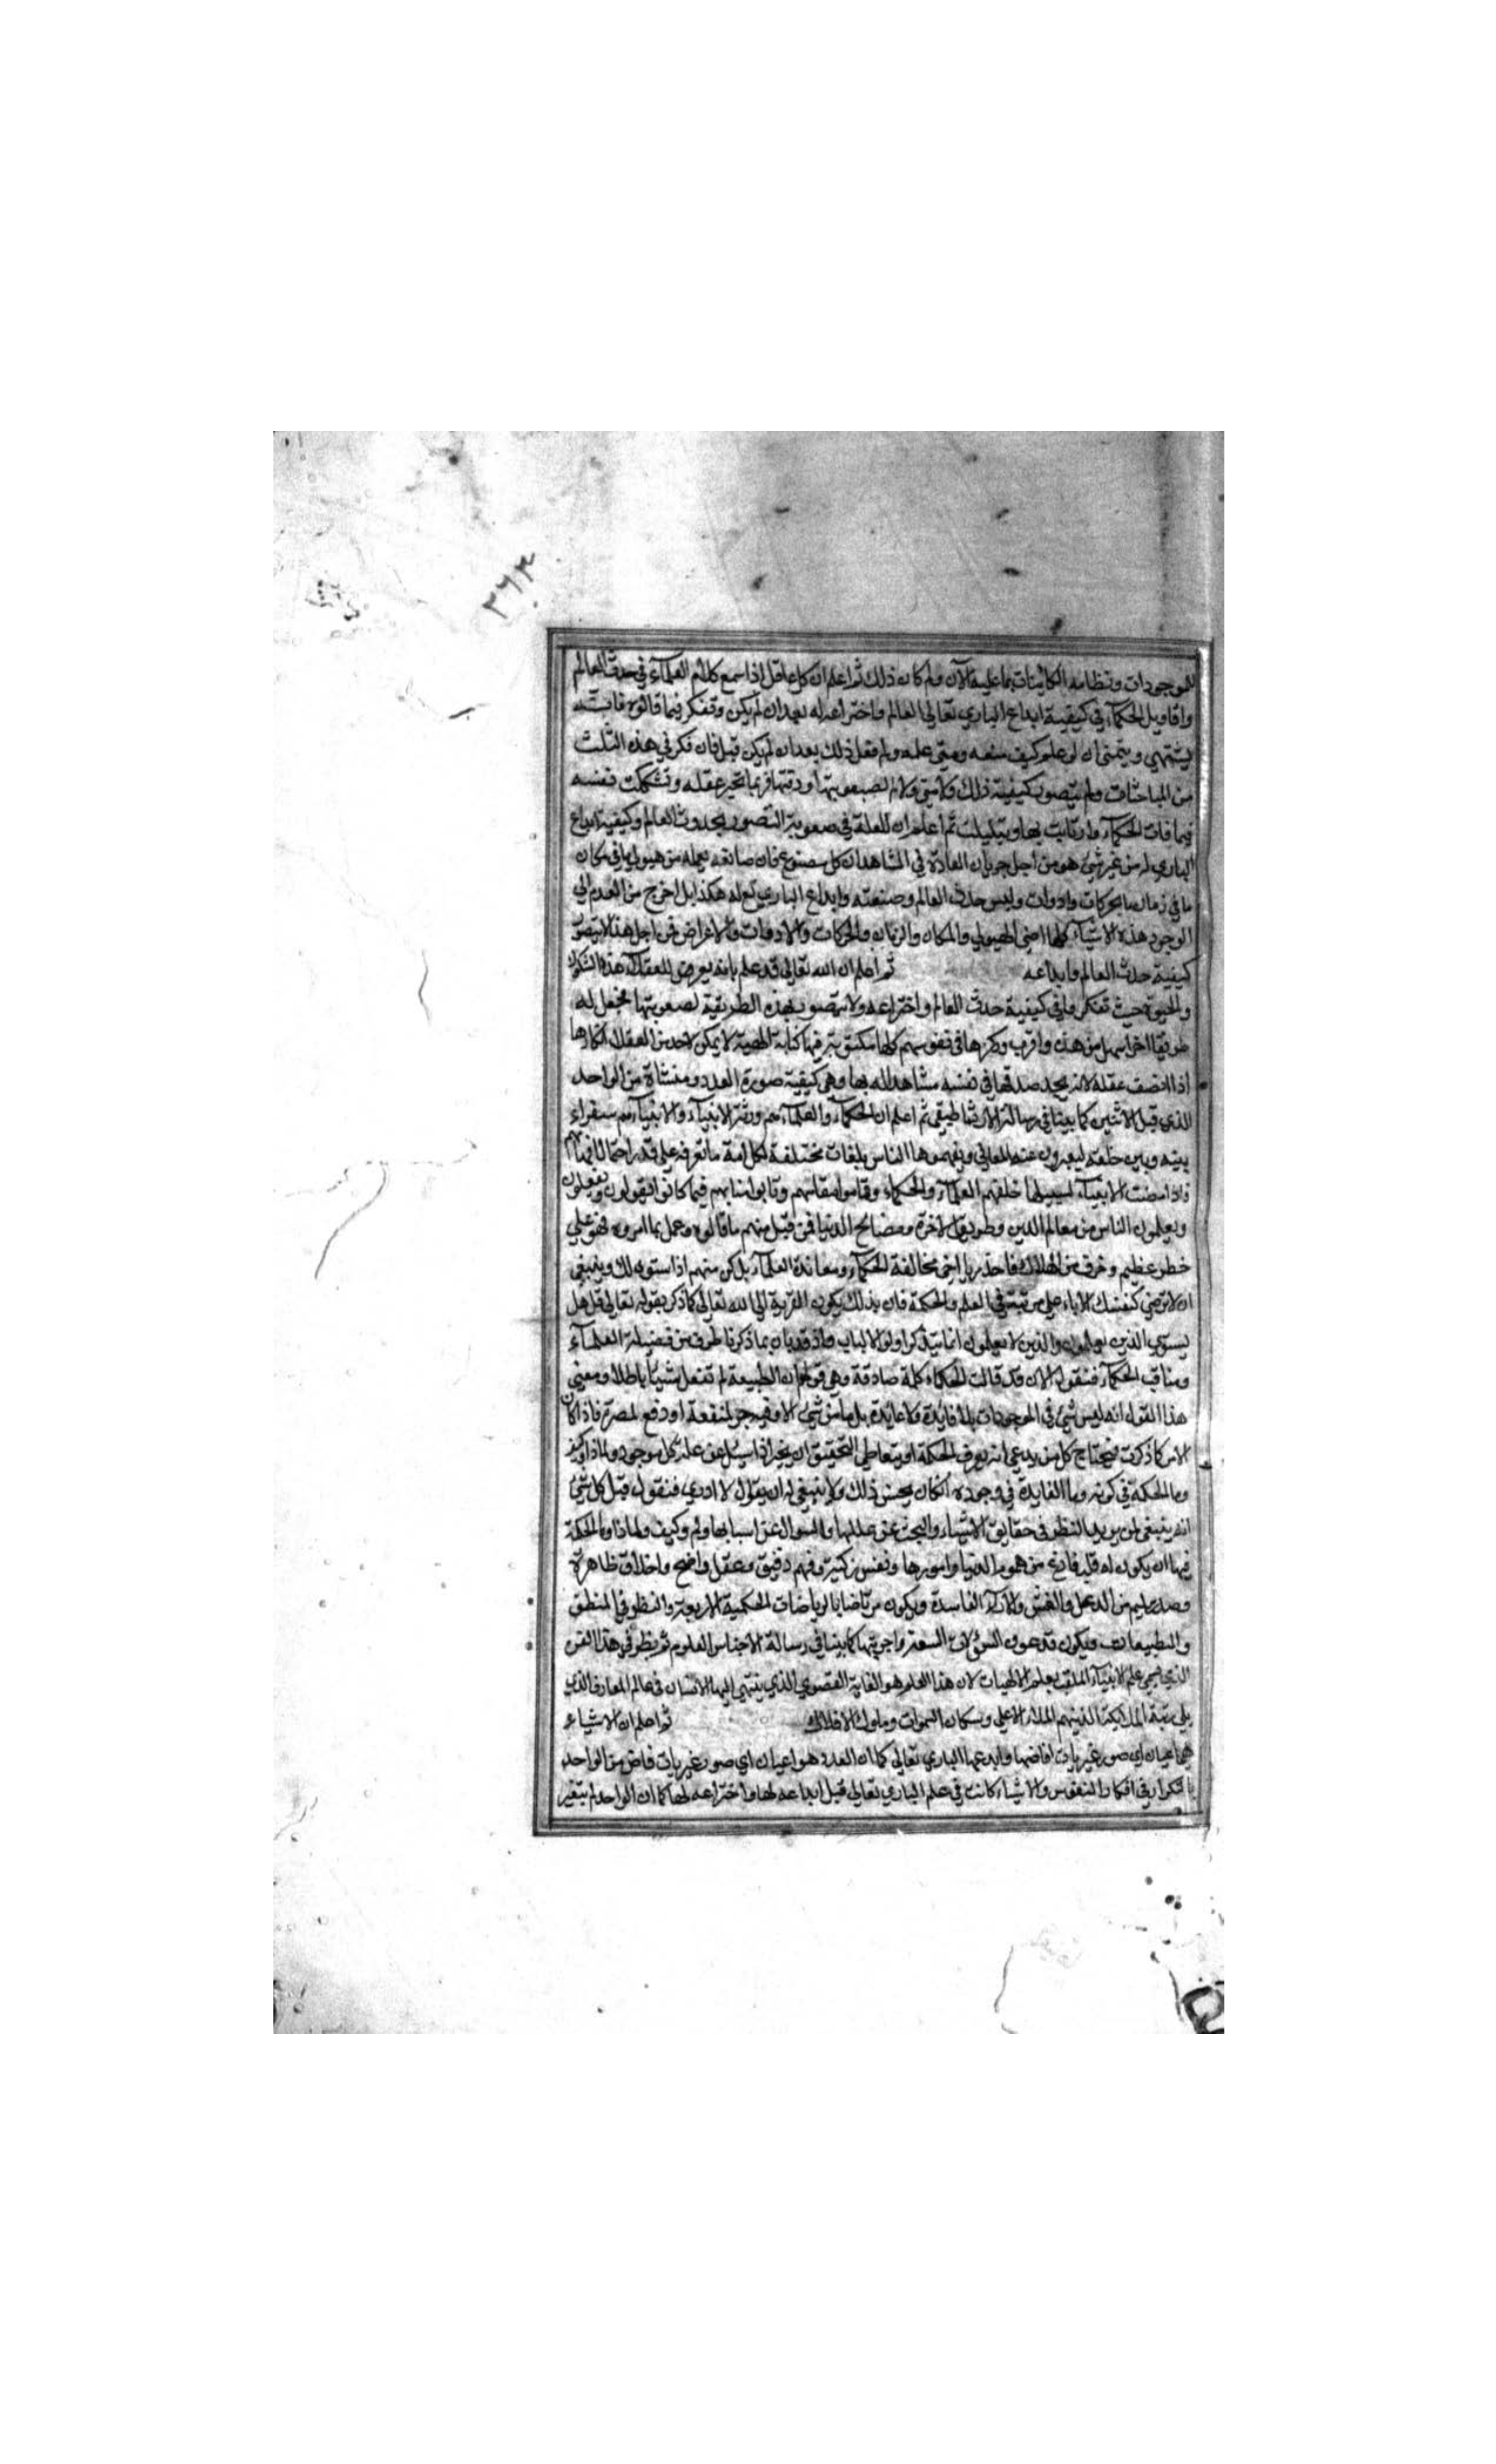 ٢٦٣
للموجودات ونظامه الكائينات بما عليه الآن ولم كان ذلك ثم اعلم ان كل عاقل اذا سمع كلام العلمآء في حدث العالم
واقاويل الحكمآء في كيفية ابداع الباري تعالى العالم واختراعه له بعد ان لم يكن وتفكر فيما قالوه
يشتهي ويتمنى ان لو علم كيف صنعه ومتى عمله ولم فعل ذلك بعد ان لم يكن قبل فان فكر في هذه الثلث
من المباحثات ولم يتصور كيفية ذلك ولا متى ولا لم لصعوبتها ودقتها فربما تحير عقله وتشككت نفسه
فيما قالت الحكمآء وارتابت بها وتبلبلت ثم اعلم ان العلة في صعوبة التصور بحدوث العالم وكيفية ابداع
الباري له من غير شئ هو من اجل جريان العادة في المشاهد ان كل مصنوع فان صانعه يعمله من هيولى ما في مكان
ما في زمان ما بحركات وادوات وليس حدث العالم وصنعته وابداع الباري له هكذا بل اخرج من العدم الى
الوجود هذه الاشيآء كلها اعني الهيولى والمكان والزمان والحركات والادوات والاعراض فمن اجل هذا لا يتصور
كيفية حدث العالم وابداعه ثم اعلم ان الله تعالى قد علم بانه يعرض للعقلاء هذه الشكوك
والحيرة حيث تفكروا في كيفية حدث العالم واختراعه ولا يتصور بهذه الطريقة لصعوبتها فجعل له
طريقا اخر اسهل من هذه واقرب وركزها في نفوسهم كلها مكتوبة فيها كتابة الهية لا يمكن لاحد من العقلا انكارها
اذا انصف عقله لانه يجد صدقها في نفسه مشاهد له بها وهي كيفية صورة العدد ومنشاة من الواحد
الذي قبل الاثنين كما بينا في رسالة الارثماطيقي ثم اعلم ان الحكمآء والعلمآء هم ورثة الانبيآء والانبيآء هم سفراء
بينه وبين خلقه ليعبرون عنه المعاني ويفهموها الناس بلغات مختلفة لكل امة ما تعرفه على قدر احتمال افهامهم
فاذا مضت الانبيآء لسبيلها خلفهم العلمآء والحكماء وقاموا مقامهم ونابوا منابهم فيما كانوا يقولون ويفعلون
ويعلمون الناس من معالم الدين وطريق الاخرة ومصالح الدنيا فمن قبل منهم ما قالوه وعمل بما امروه فهو على
خطر عظيم وخوف من الهلاك فاحذر يا اخي مخالفة الحكمآء ومعاندة العلمآء بل كن منهم اذا استوى لك وينبغي
ان لا ترضي لنفسك الا باعلى مرتبة في العلم والحكمة فان بذلك يكون القربة الى الله تعالى كما ذكر بقوله تعالى قل هل
يستوي الذين يعلمون والذين لا يعلمون انما يتذكر اولوا الالباب واذ قد بان بما ذكرنا طرف من فضيلة العلمآء
ومناقب الحكمآء فنقول الان قد قالت الحكماء كلمة صادقة وهي قولهم ان الطبيعة لم تفعل شيئا باطلا ومعنى
هذا القول انه ليس شئ في الموجودات بلا فايدة ولا عايدة بل ما من شئ الا وفيه جر لمنفعة او دفع لمضرة فاذا كان
الامر كما ذكرت فيحتاج كل من يدعي انه يعرف الحكمة او يتعاطى التحقيق ان يخبر اذا سئل عن علة كل موجود ولماذا
وما الحكمة في كونه وما الفايدة في وجوده ان كان يحسن ذلك ولا ينبغي له ان يقول لا ادري فنقول قبل كل شئ
انه ينبغي لمن يريد النظر في حقايق الاشياء والبحث عن عللها والسوال عن اسبابها ولم وكيف ولماذا وما الحكمة
فيها ان يكون له قلب فارغ من هموم الدنيا وامورها ونفس زكية وفهم دقيق وعقل واضح واخلاق طاهرة
وصدر سليم من الدغل والغش والآرآء الفاسدة ويكون مرتاضا بالرياضات الحكمية الاربعة والنظر في المنطق
والطبيعات ويكون قد عرف السؤلات السعة واجوبتها كما بينا في رسالة الاجناس العلوم ثم ينظر في هذا الفن
الذي هي علم الانبيآء الملقب بعلم الالهيات لان هذا العلم هو الغاية القصوى الذي ينتهي اليها الانسان في عالم المعارف الذي
يلي رتبة الملايكة الذينهم الملاء الاعلى وسكان السموات وملوك الافلاك ثم اعلم ان الاشياء
هي اعيان اي صور غيريات افاضها وابدعها الباري تعالى كما ان العدد هو اعيان اي صور غيريات فاض من الواحد
بالتكرار في افكار النفوس والاشياء كانت في علم الباري تعالى قبل ابداعه لها واختراعه لها كما ان الواحد لم يتغير